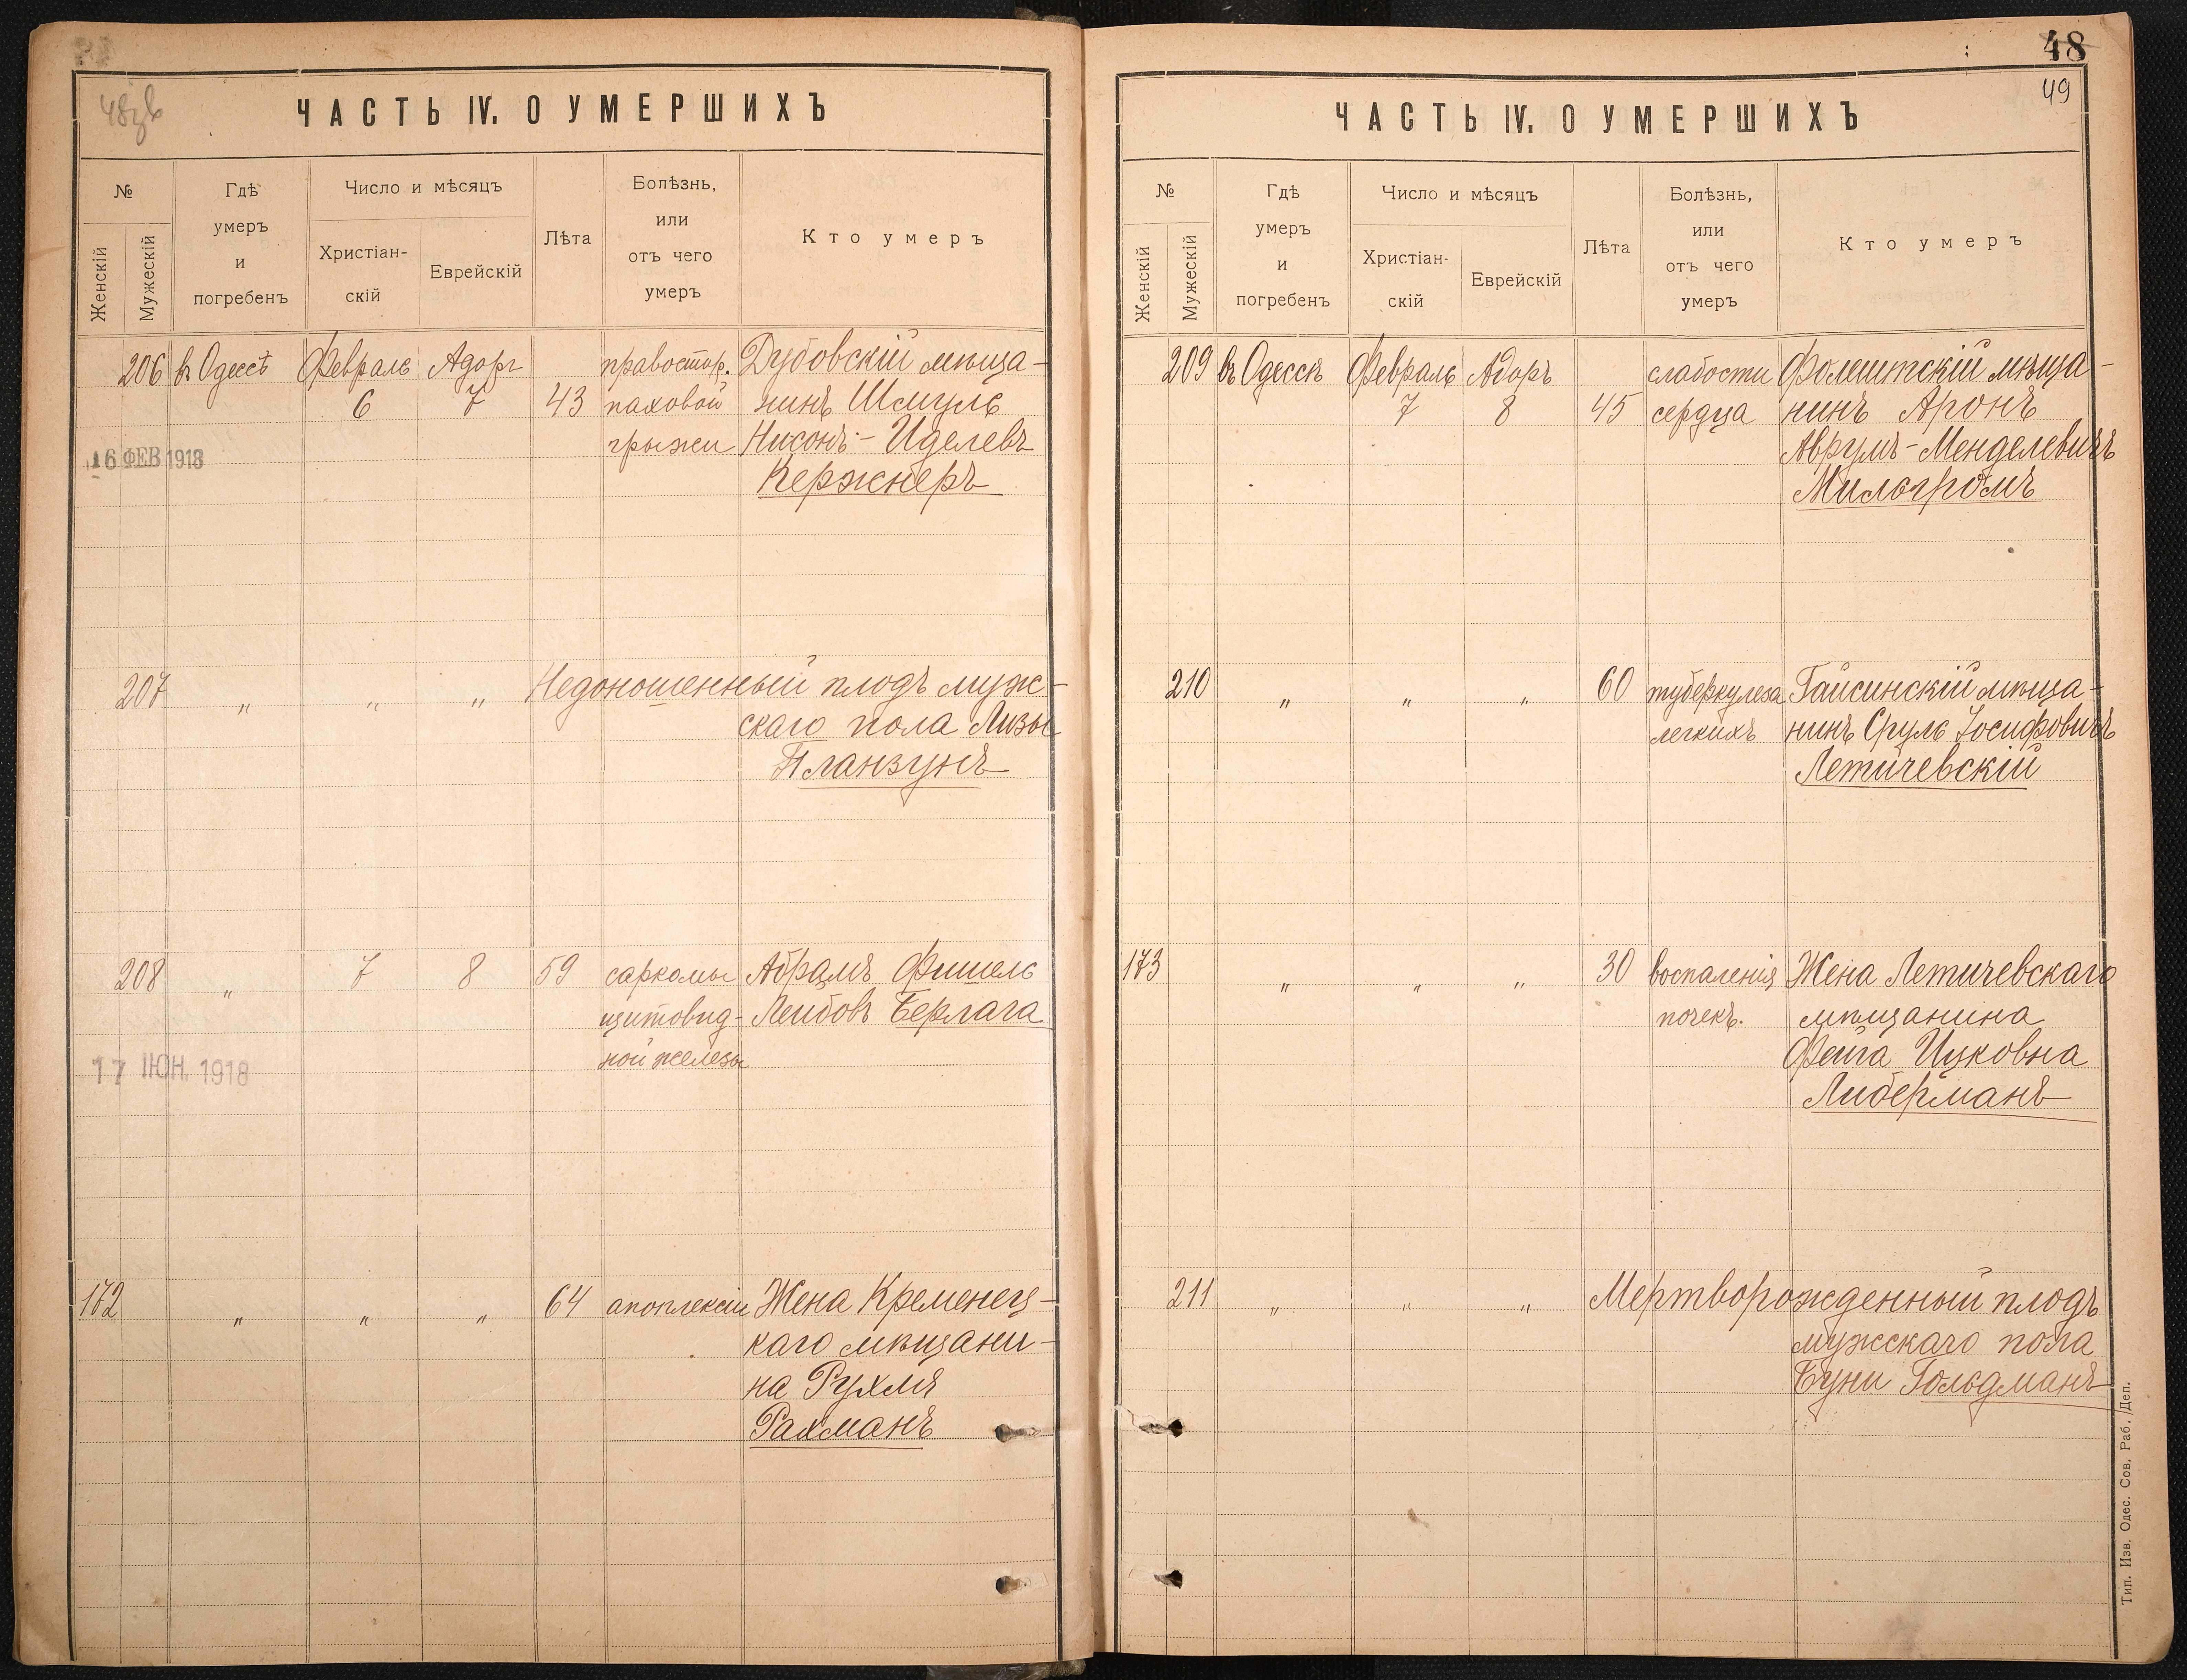 48зв
ЧАСТЬ IV. О УМЕРШИХЪ
№
Женскій
Мужескій
Гдѣ
умеръ
и
погребенъ
Число и мѣсяцъ
Христіан-
скій
Еврейскій
Лѣта
Болѣзнь,
или
отъ чего
умеръ
Кто умеръ
206 въ Одессѣ Февраль Адоръ правостор. Дубовскій мѣща-
6 7 43 паховой нинъ Шмуль
грыжи Нисонъ-Иделевъ
16 ФЕВ 1918
Кержнеръ
207 " " " Недоношенный плодъ муж-
скаго пола Лизы
Планзунъ
208 " 7 8 59 саркомы Абрамъ Фишель
щитовид- Лейбовъ Берлага
ной железы
17 ІЮН. 1918
172 " " " 64 апоплексіи Жена Кременец-
каго мѣщани-
на Рухля
Рахманъ
48
49
ЧАСТЬ IV. О УМЕРШИХЪ
№
Женскій
Мужескій
Гдѣ
умеръ
и
погребенъ
Число и мѣсяцъ
Христіан-
скій
Еврейскій
Лѣта
Болѣзнь,
или
отъ чего
умеръ
Кто умеръ
209 въ Одессѣ Февраль Адоръ слабости Фолештскій мѣща-
7 8 45 сердца нинъ Аронъ
Аврумъ-Менделевичъ
Мильгромъ
210 " " " 60 туберкулеза Гайсинскій мѣща-
легкихъ нинъ Сруль Іосифовичъ
Летичевскій
173 " " " 30 воспаленія Жена Летичевскаго
почекъ. мѣщанина
Фейга Ицковна
Либерманъ
211 " " " Мертворожденный плодъ
мужскаго пола
Буни Гольдманъ
Тип. Изв. Одес. Сов. Раб. Деп.